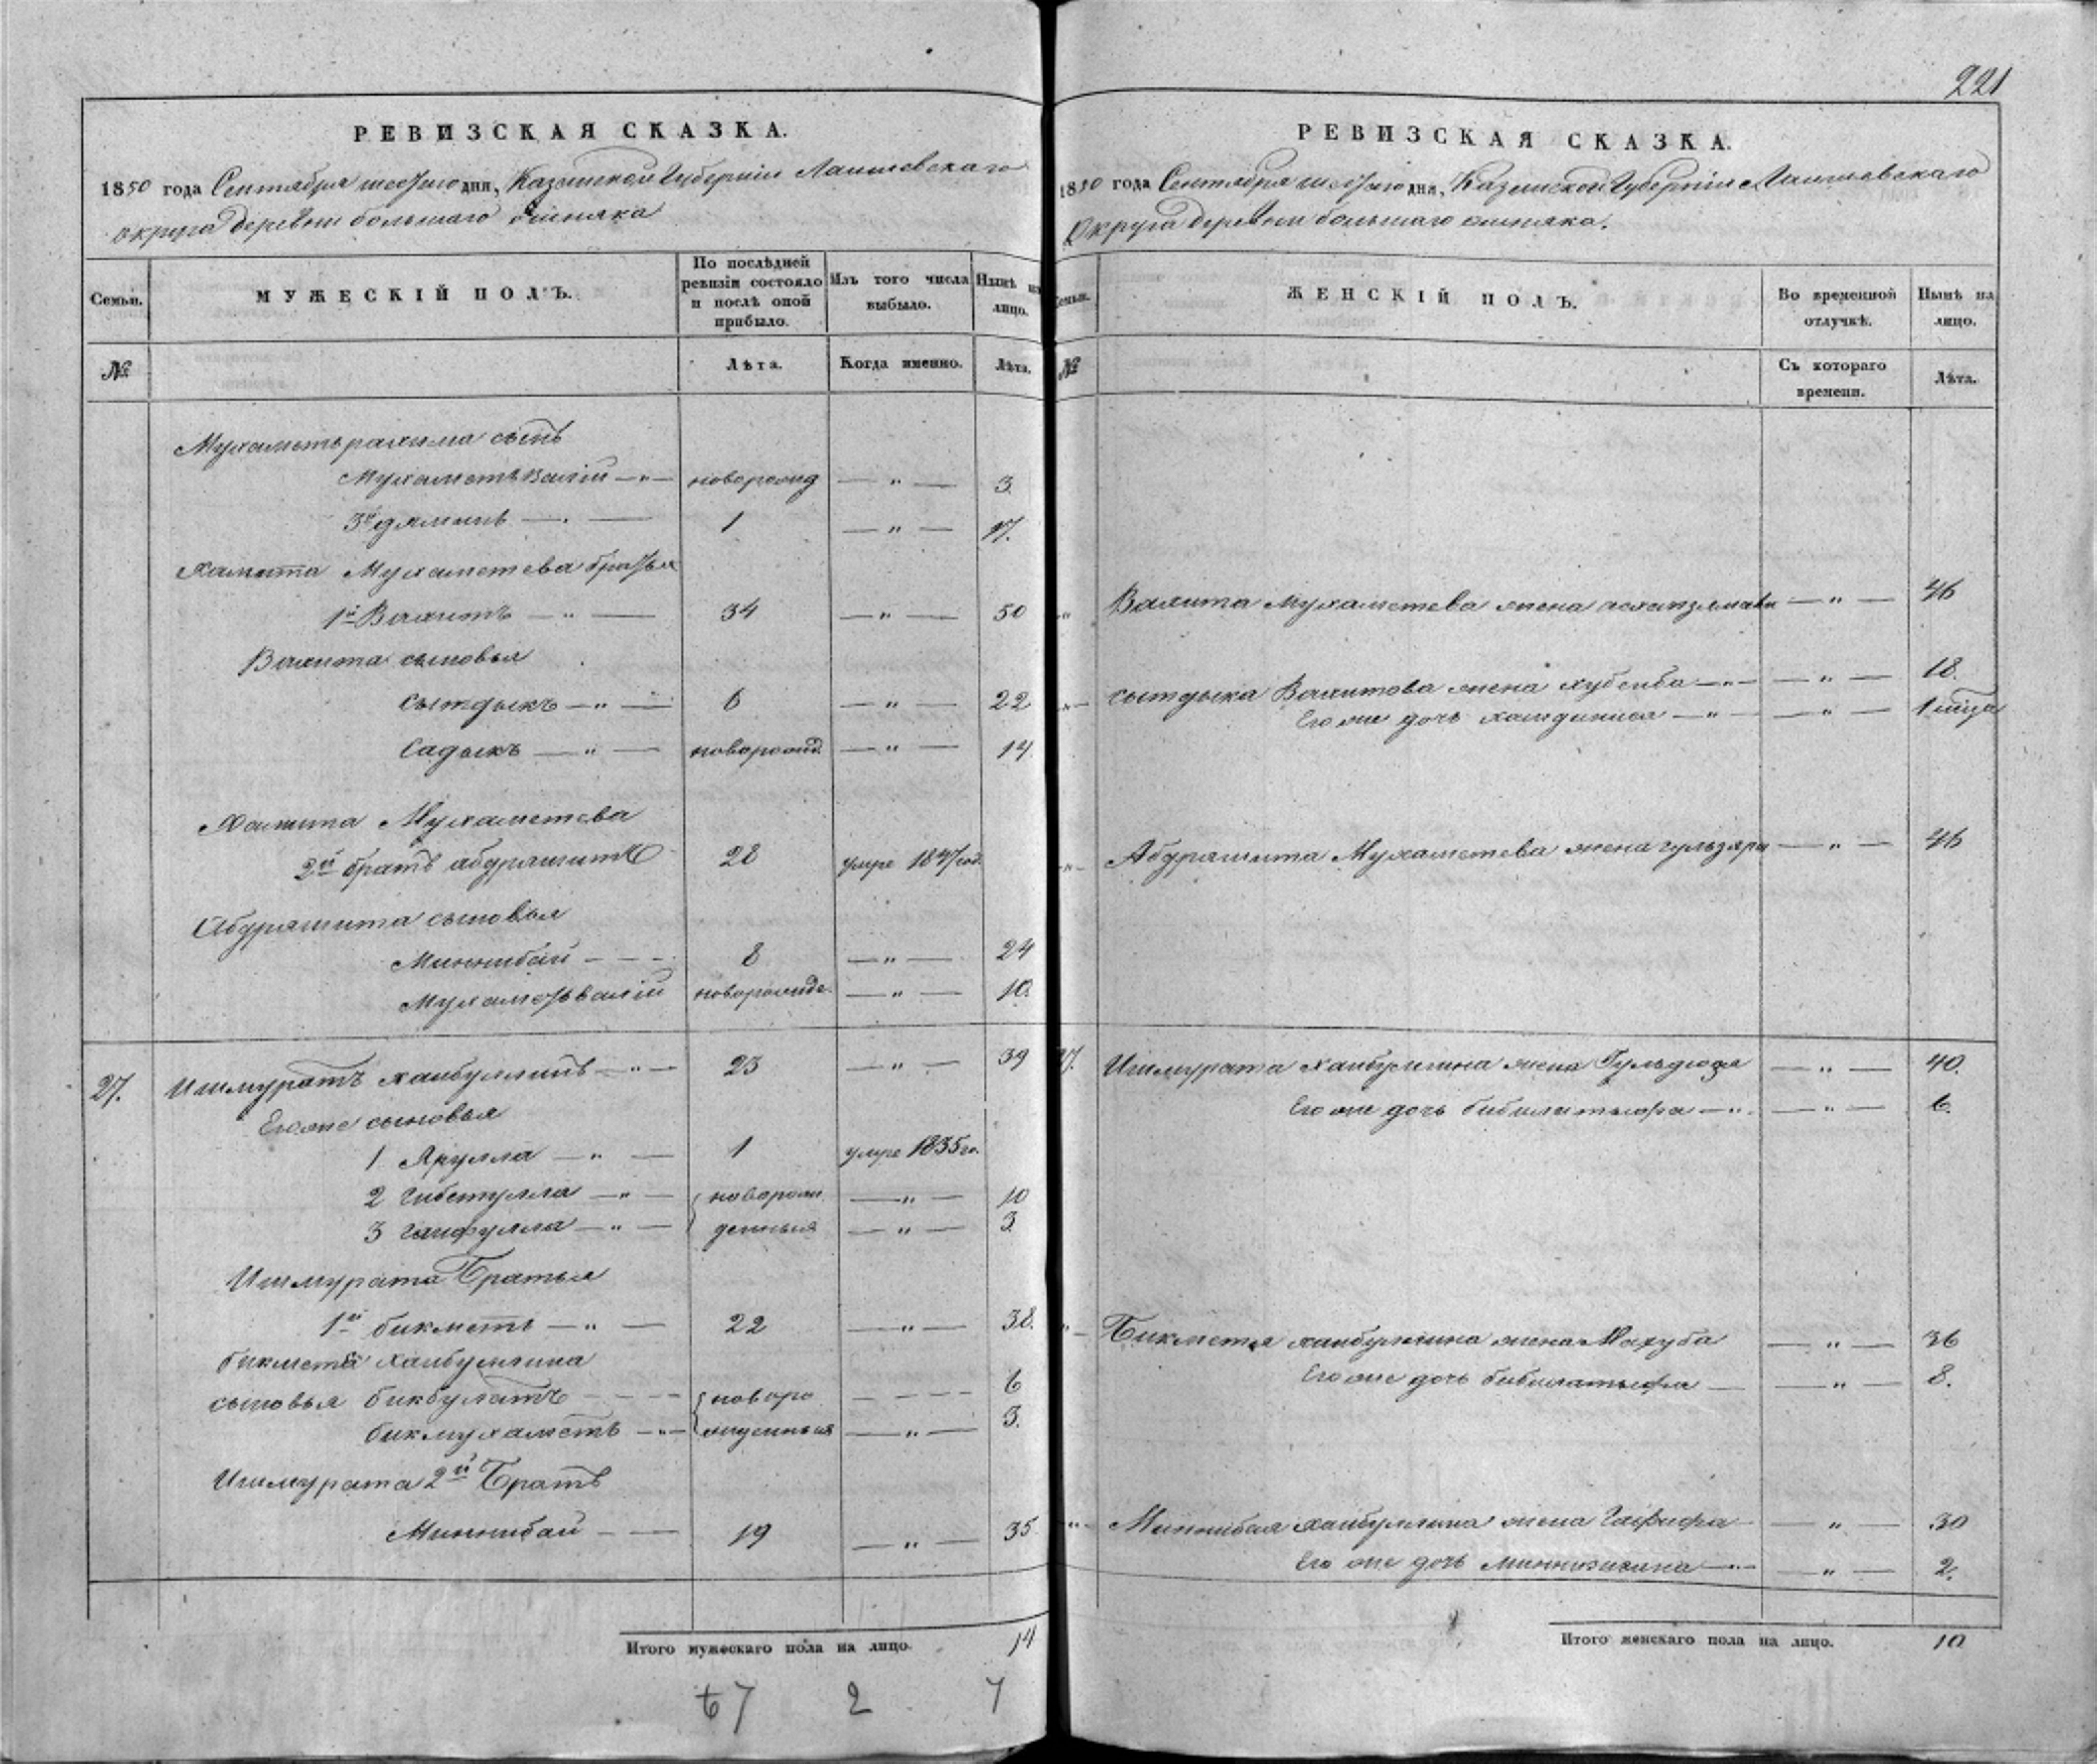 РЕВИЗСКАЯ СКАЗКА.
1850 года Сентября шестого дня, Казанской Губерніи Лаишевскаго
округа деревни большаго
Семьи.
МУЖЕСКІЙ ПОЛЪ.
По послѣдней ревизіи состояло и послѣ оной прибыло.
Изъ того числа выбыло.
Нынѣ на лицо.
№
Лѣта.
Когда именно.
Лѣта.
Мухаметьрахима сынъ
Мухаметьвалій — „ — новорожд — „ — 3
3й — . — 1 — „ — 17.
Хамита Мухаметева братья
1й Вахитъ — „ — 34 — „ — 50
Вахита сыновья
Сытдыкъ — „ — 6 — „ — 22
Садыкъ — „ — новорожд — „ — 14
Хамита Мухаметева
2й братъ абдрашитъ 28 умре 1847 год
Абдрашита сыновья
Миннибай — — — 8 — „ — 24
Мухаметьвалій новорожде. — „ — 10.
27. Ишмуратъ хаибуллинъ — „ — 23 — „ — 39
Его же сыновья
1 Ярулла — „ — 1 умре 1835 го.
2 Гибетулла — „ — новорож — „ — 10
3 Гайфулла — „ — денныя — „ — 3
Ишмурата Братья
1й бикметь — „ — 22 — „ — 38.
бикметя хаибуллина
сыновья бикбулатъ — — — новоро — — — 6
бикмухаметь — „ — жденныя — „ — 3.
Ишмурата 2й Братъ
Миннибай — — 19 — „ — 35
Итого мужескаго пола на лицо. 14
67 2 7
221
РЕВИЗСКАЯ СКАЗКА.
1850 года Сентября шестого дня, Казанской Губерніи Лаишевскаго
Округа деревни большаго
Семьи.
ЖЕНСКІЙ ПОЛЪ.
Во временной отлучкѣ.
Нынѣ на лицо.
№
Съ котораго времени.
Лѣта.
„ Вахита Мухаметева жена — „ — 46
„ Сытдыка Вахитова жена хубейба — „ — — „ — 18.
Его же дочь — „ — — „ — 1
„ Абдрашита Мухаметева жена гульзяра — „ — 46
27. Ишмурата хаибуллина жена — „ — 40.
Его же дочь — „ — — „ — 6.
„ Бикметя хаибуллина жена Махуба — „ — 36
Его же дочь — — „ — 8.
„ Миннибая хаибуллина жена — „ — 30
Его же дочь — „ — — „ — 2.
Итого женскаго пола на лицо. 10